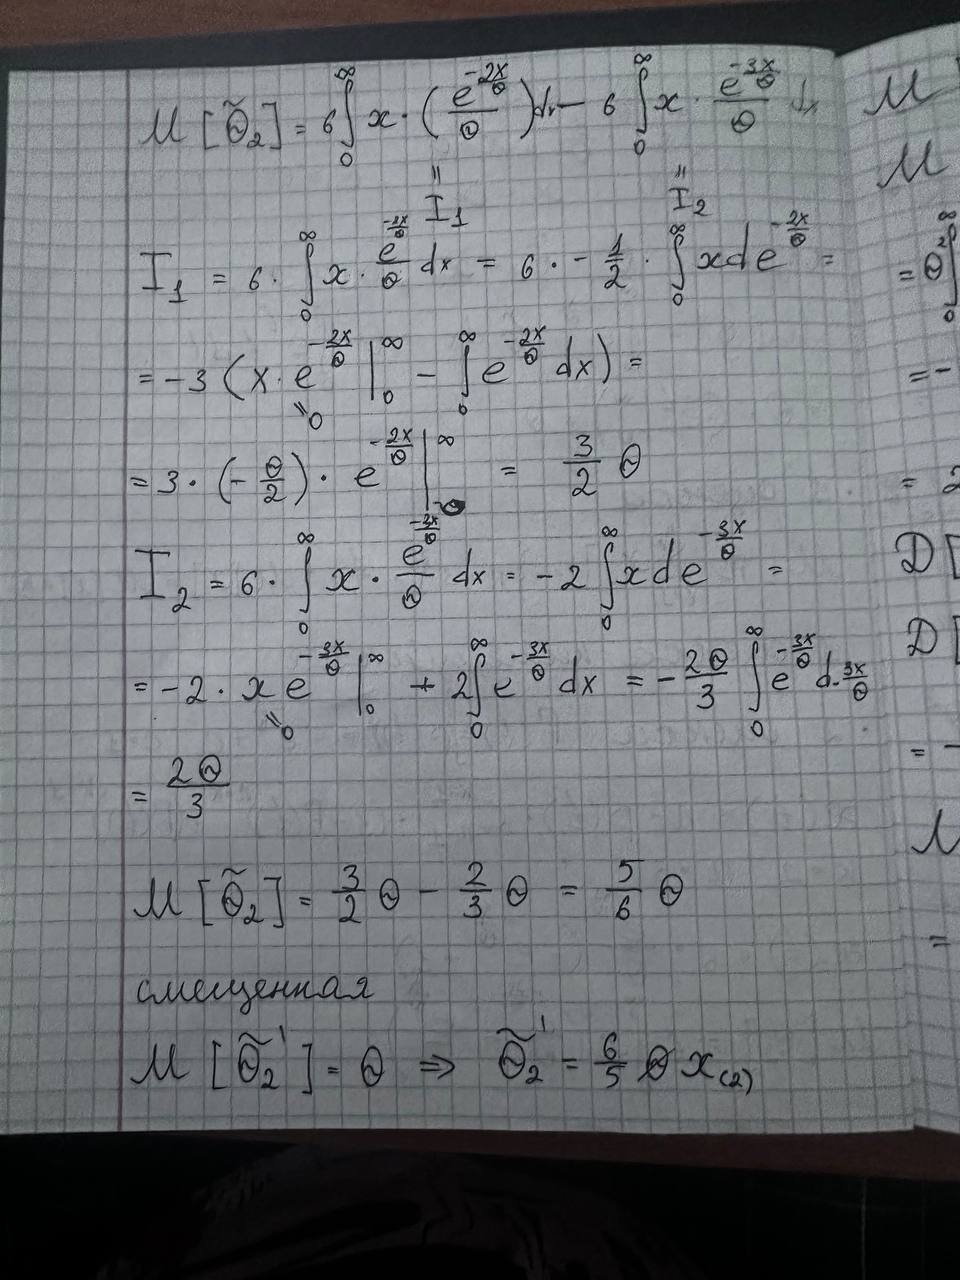 M[θ̃₂] = 6 ∫₀^∞ x · (e^(-2x/θ)/θ) dx − 6 ∫₀^∞ x · e^(-3x/θ)/θ dx
= I₁ = I₂
I₁ = 6 · ∫₀^∞ x · e^(-2x/θ)/θ dx = 6 · − 1/2 · ∫₀^∞ x d e^(-2x/θ) =
= −3 (x · e^(-2x/θ) |₀^∞ − ∫₀^∞ e^(-2x/θ) dx) =
=0
= 3 · (−θ/2) · e^(-2x/θ) |₀^∞ = 3/2 θ
I₂ = 6 · ∫₀^∞ x · e^(-3x/θ)/θ dx = −2 ∫₀^∞ x d e^(-3x/θ) =
= −2 · x e^(-3x/θ) |₀^∞ + 2 ∫₀^∞ e^(-3x/θ) dx = − 2θ/3 ∫₀^∞ e^(-3x/θ) d · 3x/θ
=0
= 2θ/3
M[θ̃₂] = 3/2 θ − 2/3 θ = 5/6 θ
смещенная
M[θ̃₂'] = θ ⇒ θ̃₂' = 6/5 x₍₂₎
M
M
= θ² ∫₀^∞
= −
= 2
D[
D[
= −
M
=